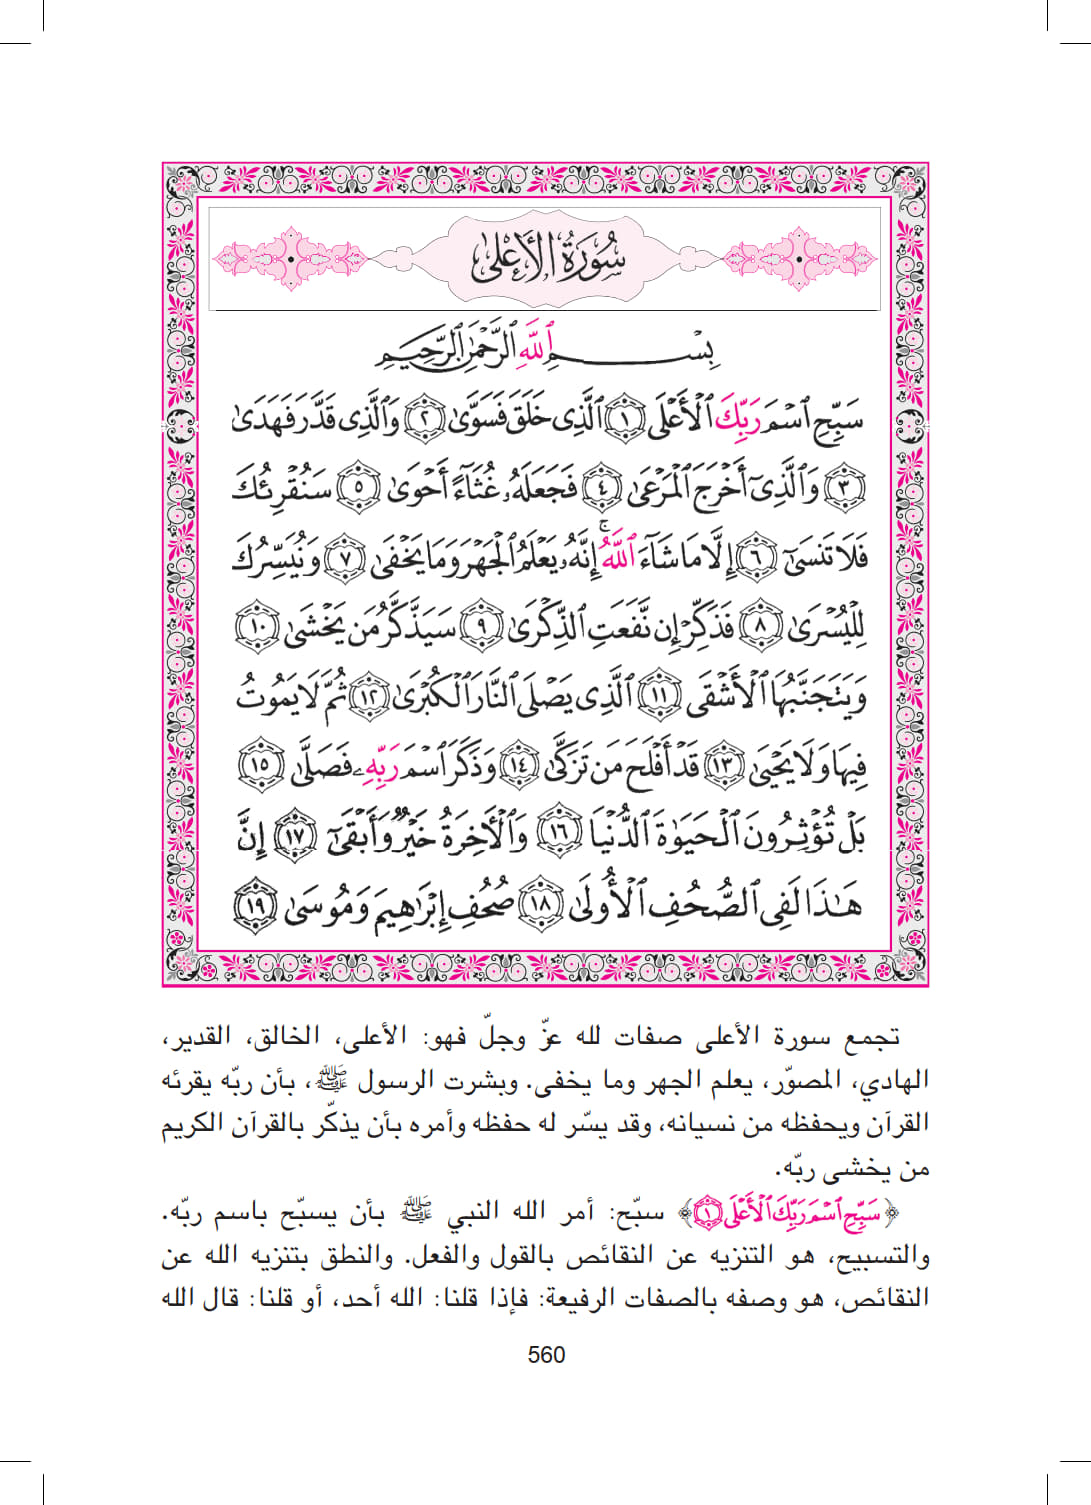 سُورَةُ الأَعْلَىٰ
بِسْمِ ٱللَّهِ ٱلرَّحْمَٰنِ ٱلرَّحِيمِ
سَبِّحِ ٱسْمَ رَبِّكَ ٱلْأَعْلَى ١ ٱلَّذِى خَلَقَ فَسَوَّىٰ ٢ وَٱلَّذِى قَدَّرَ فَهَدَىٰ
٣ وَٱلَّذِىٓ أَخْرَجَ ٱلْمَرْعَىٰ ٤ فَجَعَلَهُۥ غُثَآءً أَحْوَىٰ ٥ سَنُقْرِئُكَ
فَلَا تَنسَىٰٓ ٦ إِلَّا مَا شَآءَ ٱللَّهُ ۚ إِنَّهُۥ يَعْلَمُ ٱلْجَهْرَ وَمَا يَخْفَىٰ ٧ وَنُيَسِّرُكَ
لِلْيُسْرَىٰ ٨ فَذَكِّرْ إِن نَّفَعَتِ ٱلذِّكْرَىٰ ٩ سَيَذَّكَّرُ مَن يَخْشَىٰ ١٠
وَيَتَجَنَّبُهَا ٱلْأَشْقَى ١١ ٱلَّذِى يَصْلَى ٱلنَّارَ ٱلْكُبْرَىٰ ١٢ ثُمَّ لَا يَمُوتُ
فِيهَا وَلَا يَحْيَىٰ ١٣ قَدْ أَفْلَحَ مَن تَزَكَّىٰ ١٤ وَذَكَرَ ٱسْمَ رَبِّهِۦ فَصَلَّىٰ ١٥
بَلْ تُؤْثِرُونَ ٱلْحَيَوٰةَ ٱلدُّنْيَا ١٦ وَٱلْـَٔاخِرَةُ خَيْرٌ وَأَبْقَىٰٓ ١٧ إِنَّ
هَـٰذَا لَفِى ٱلصُّحُفِ ٱلْأُولَىٰ ١٨ صُحُفِ إِبْرَٰهِيمَ وَمُوسَىٰ ١٩
تجمع سورة الأعلى صفات لله عزّ وجلّ فهو: الأعلى، الخالق، القدير،
الهادي، المصوّر، يعلم الجهر وما يخفى. وبشرت الرسول ﷺ، بأن ربّه يقرئه
القرآن ويحفظه من نسيانه، وقد يسّر له حفظه وأمره بأن يذكّر بالقرآن الكريم
من يخشى ربّه.
﴿سَبِّحِ ٱسْمَ رَبِّكَ ٱلْأَعْلَى ١﴾ سبّح: أمر الله النبي ﷺ بأن يسبّح باسم ربّه.
والتسبيح، هو التنزيه عن النقائص بالقول والفعل. والنطق بتنزيه الله عن
النقائص، هو وصفه بالصفات الرفيعة: فإذا قلنا: الله أحد، أو قلنا: قال الله
560